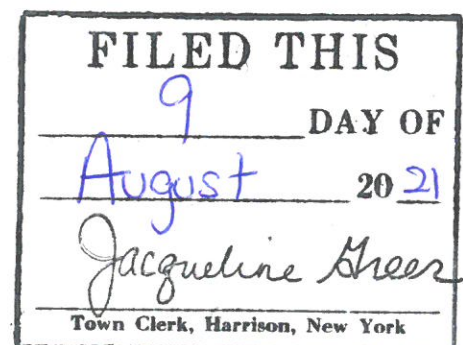 FILED THIS
9 DAY OF
August 20 21
Jacqueline Greer
Town Clerk, Harrison, New York